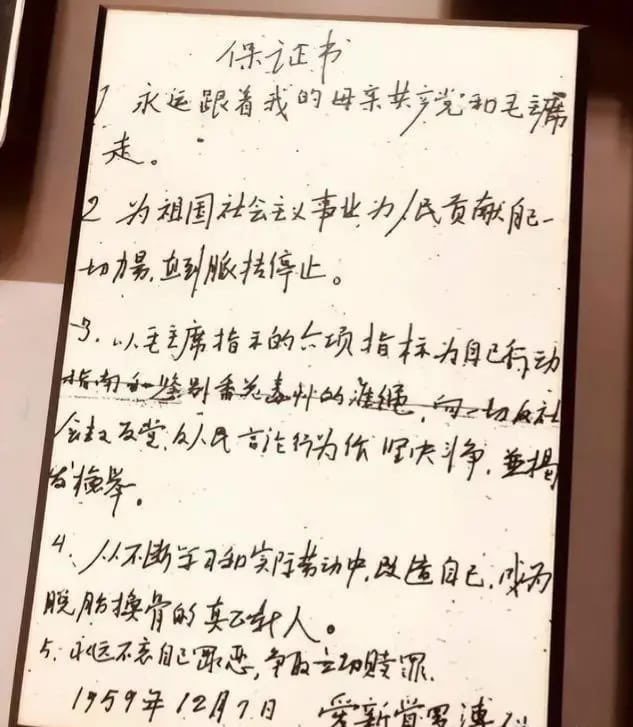 保证书
1 永远跟着我的母亲共产党和毛主席
走。
2 为祖国社会主义事业,为人民贡献自己一
切力量,直到脉搏停止。
3. 以毛主席指示的六项指标为自己行动
指南和鉴别香花毒草的准绳,向一切反社
会主义反党,反人民言论行为作坚决斗争,並揭
发检举。
4. 从不断学习和实际劳动中,改造自己,成为
脱胎换骨的真正新人。
5. 永远不忘自己罪恶,争取立功赎罪.
1959年12月7日 爱新觉罗溥